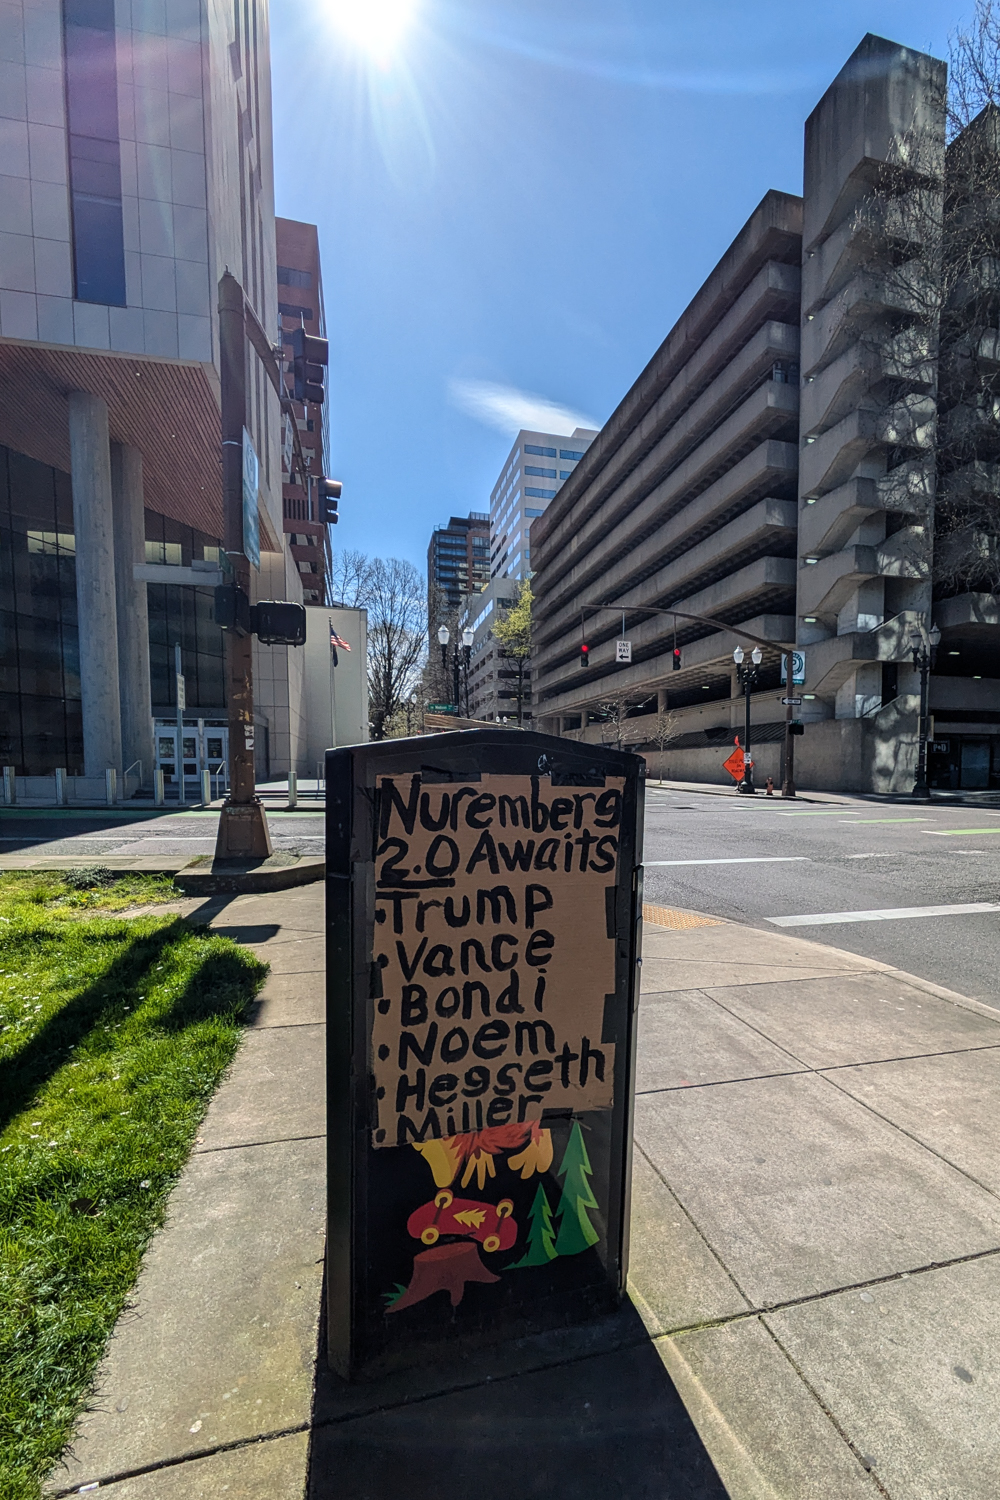 ONE
WAY
Nuremberg
2.0 Awaits
• Trump
• Vance
• Bondi
• Noem
• Hegseth
• Miller